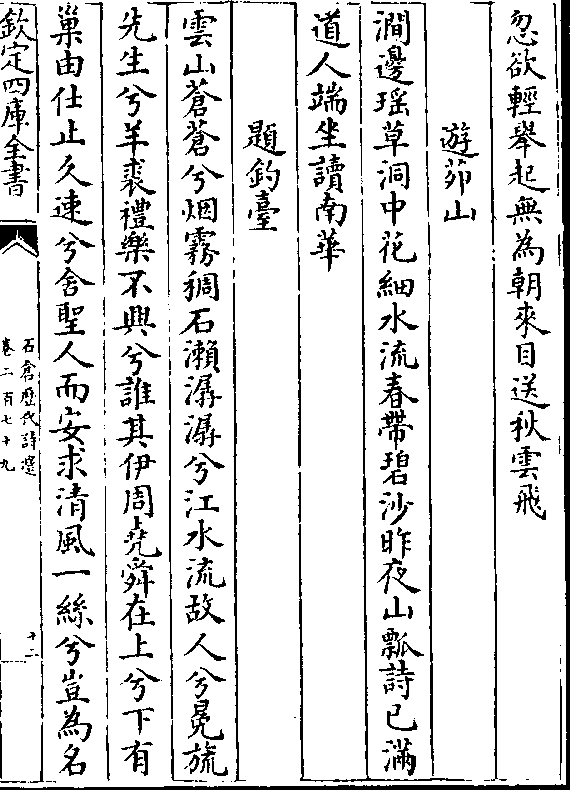 忽欲輕舉起無為朝來目送秋雲飛
遊茆山
澗邊瑶草洞中花細水流春帶碧沙昨夜山瓢詩已滿
道人端坐讀南華
題釣臺
雲山蒼蒼兮烟霧稠石瀬潺潺兮江水流故人兮冕旒
先生兮羊裘禮樂不興兮誰其伊周堯舜在上兮下有
巢由仕止久速兮舍聖人而安求清風一絲兮豈為名
欽定四庫全書
石倉歷代詩選
卷二百七十九
十二